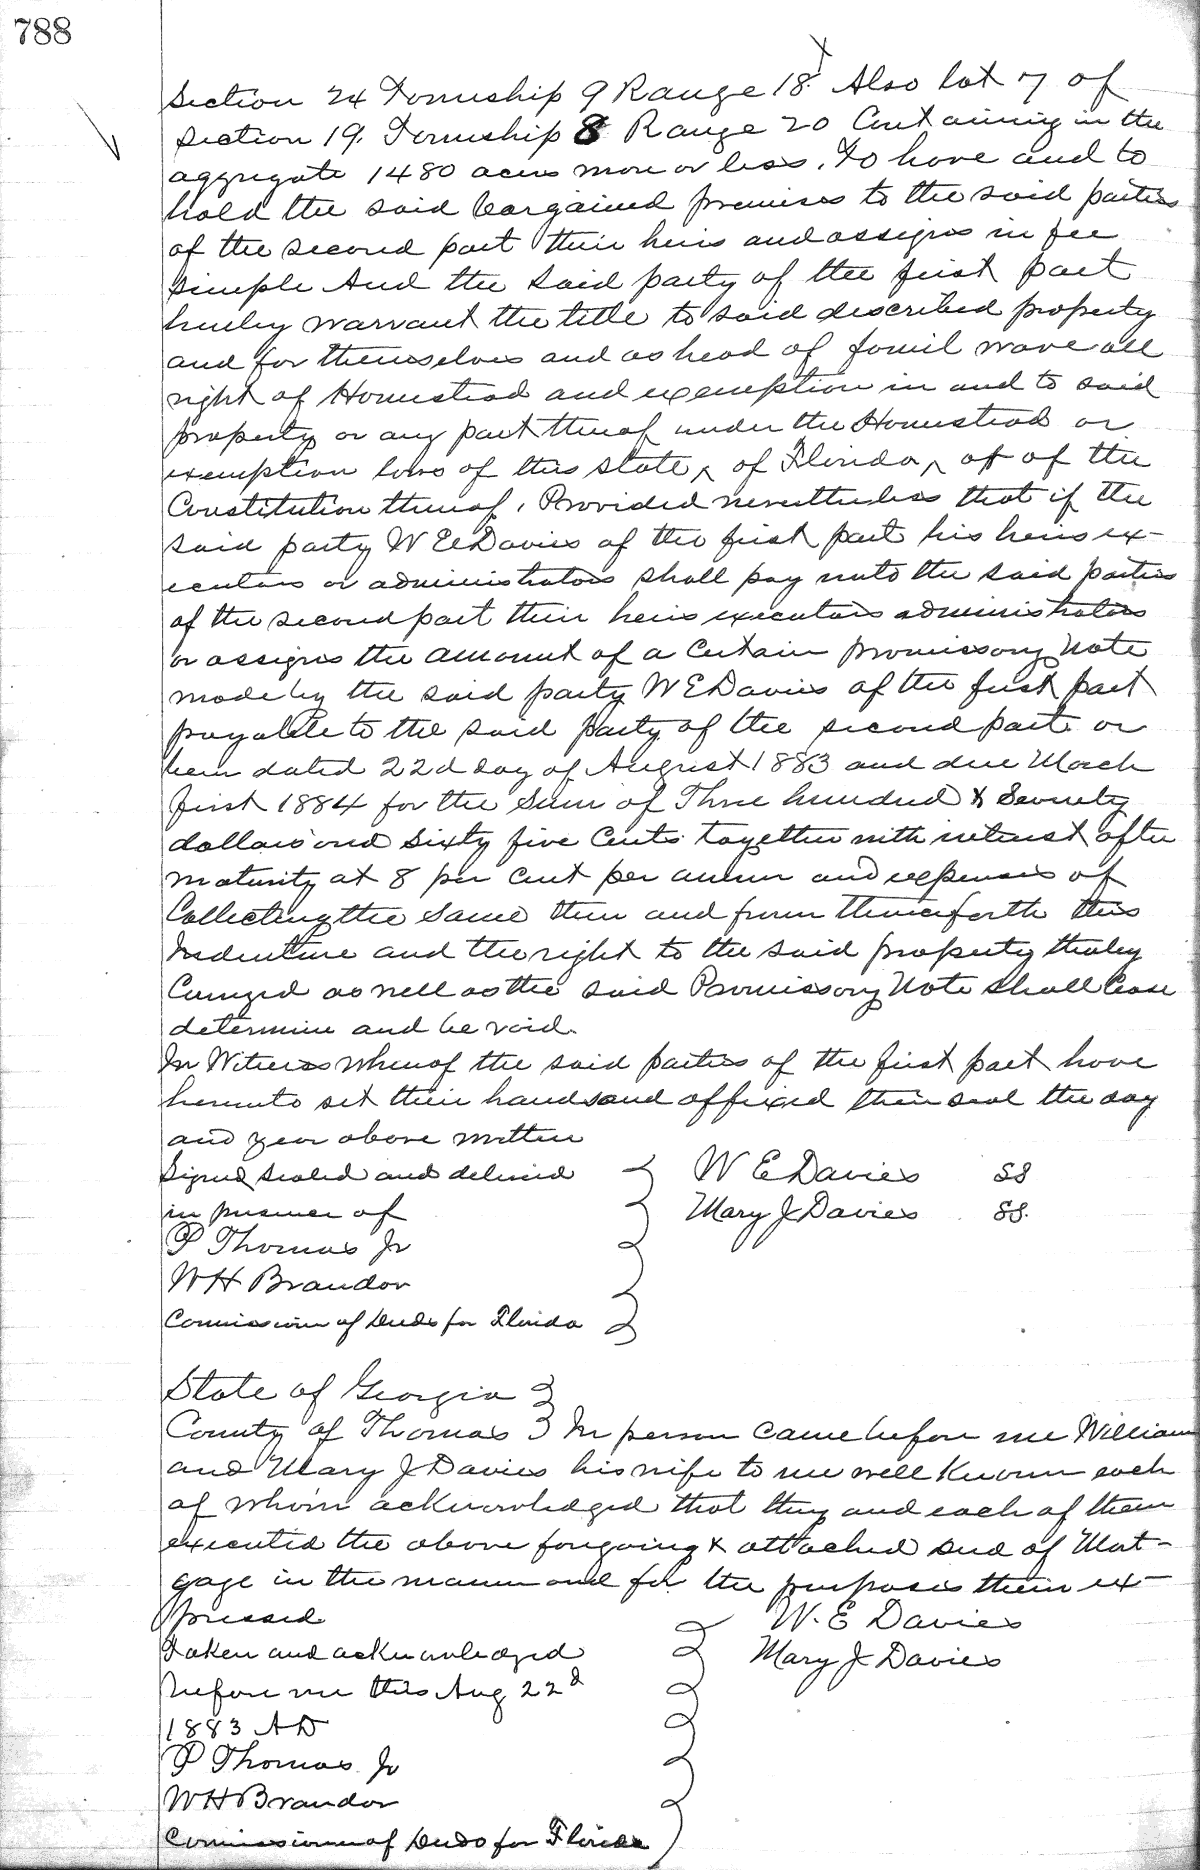 788
Section 24 Township 9 Range 18. Also Lot 7 of
Section 19. Township 8 Range 20 Containing in the
aggregate 1480 acres more or less. To have and to
hold the said bargained premises to the said parties
of the second part their heirs and assigns in fee
simple And the said party of the first part
hereby warrant the title to said described property
and for themselves and as head of famil wave all
right of Homestead and exemption in and to said
property or any part thereof under the Homestead or
exemption laws of this State ^ of Florida ^ of the
Constitution thereof. Provided nevertheless that if the
said party W E Davies of the first part his heirs ex-
ecutors or administrators shall pay unto the said parties
of the second part their heirs executors administrators
or assigns the amount of a certain promissory Note
made by the said party W E Davies of the first part
payable to the said party of the second part or
dated 22d day of August 1883 and due March
first 1884 for the Sum of Three hundred & Seventy
dollars and Sixty five Cents together with interest after
maturity at 8 per cent per annum and expenses of
Collecting the same then and from thenceforth this
Indenture and the right to the said property thereby
as well as the said Promissory Note shall Cease
determine and be void.
In Witness whereof the said parties of the first part have
hereunto set their hands and affixed their seal the day
and year above written
Signed sealed and delivered
in presence of
P Thomas Jr
W H Brandon
Commissioner of Deeds for Florida
W E Davies SS
Mary J Davies SS.
State of Georgia
County of Thomas In person came before me William
and Mary J Davies his wife to me well known each
of whom acknowledged that they and each of them
executed the above foregoing & attached deed of Mort-
gage in the manner and for the purposes therein ex-
pressed
Taken and acknowledged
before me this Aug 22d
1883 AD
P Thomas Jr
W H Brandon
Commissioner of Deeds for Florida
W. E Davies
Mary J Davies